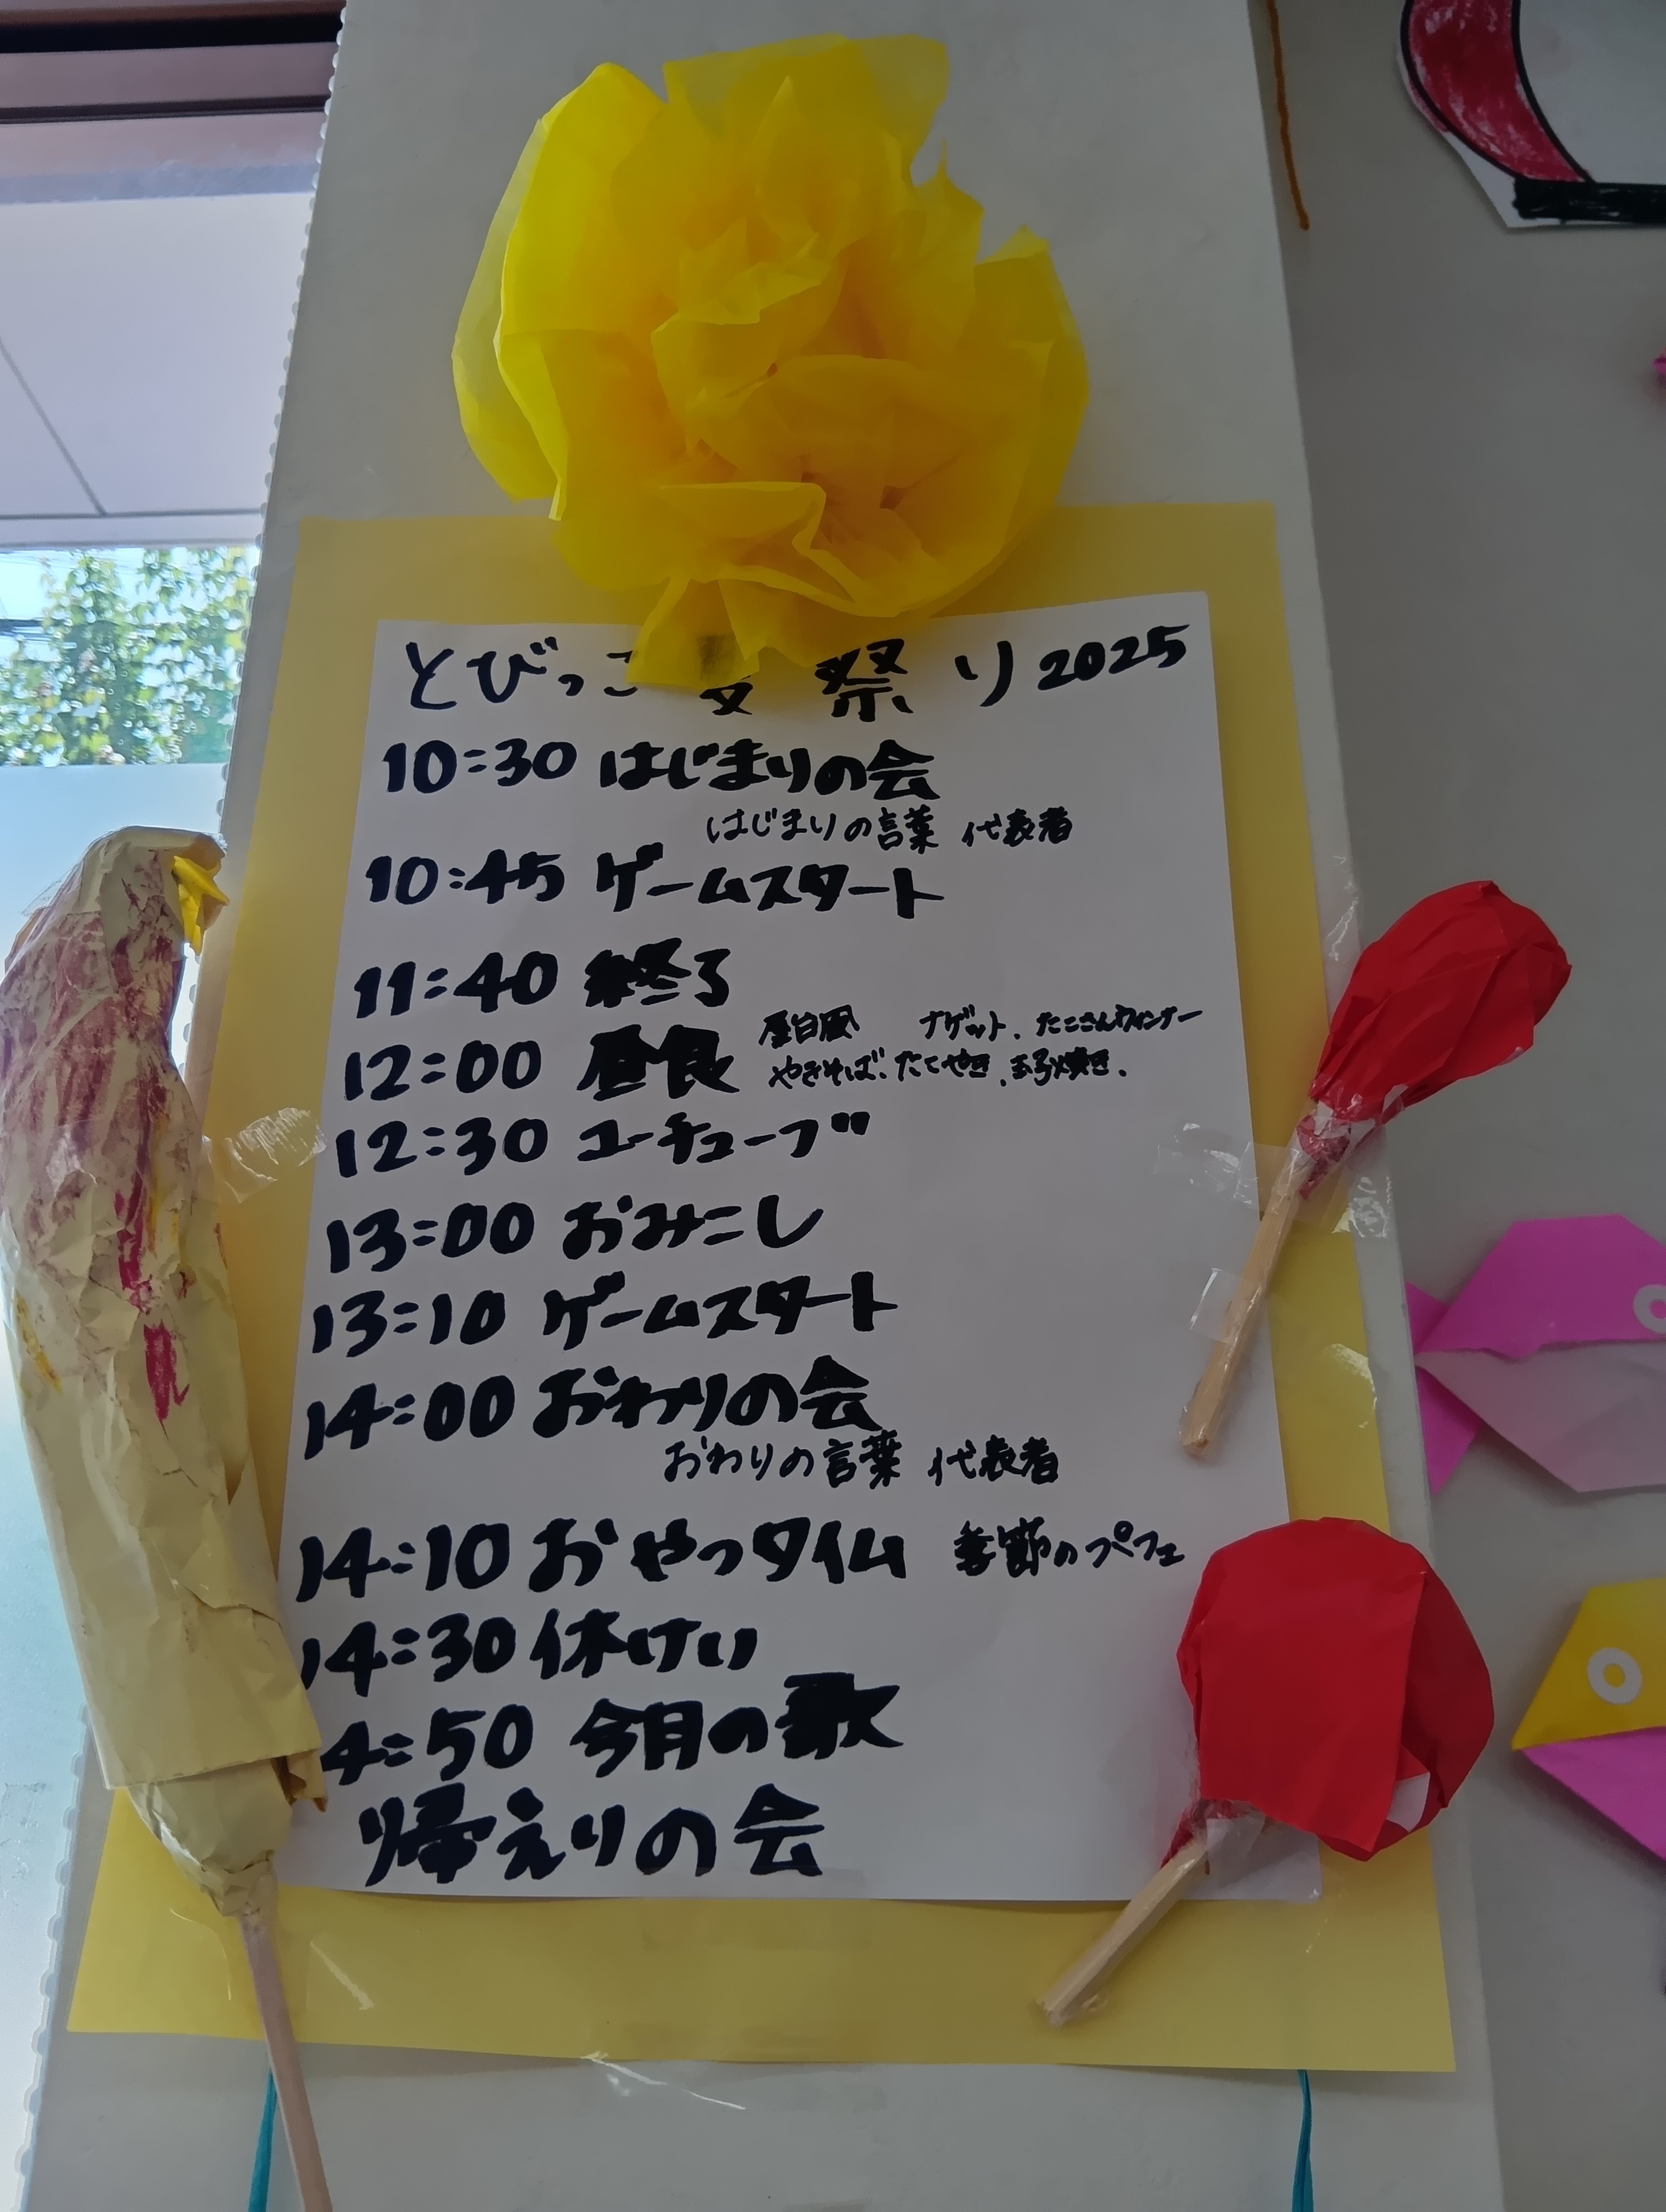 とびっこ夏祭り2025
10:30 はじまりの会
はじまりの言葉 代表者
10:45 ゲームスタート
11:40 終了
12:00 昼食 屋台風 ナゲット、たこさんウィンナー
やきそば、たこやき、玉子焼き、
12:30 ユーチューブ
13:00 おみこし
13:10 ゲームスタート
14:00 おわりの会
おわりの言葉 代表者
14:10 おやつタイム 季節のパフェ
14:30 休けい
4:50 今月の歌
帰えりの会